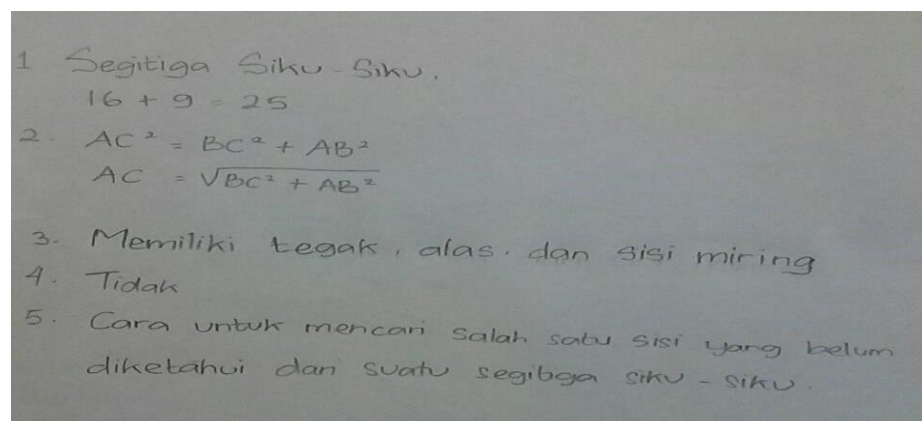 1 Segitiga Siku-Siku.
16 + 9 = 25
2. AC² = BC² + AB²
AC = √BC² + AB²
3. Memiliki tegak, alas. dan sisi miring
4. Tidak
5. Cara untuk mencari salah satu sisi yang belum
diketahui dari suatu segitiga siku-siku.